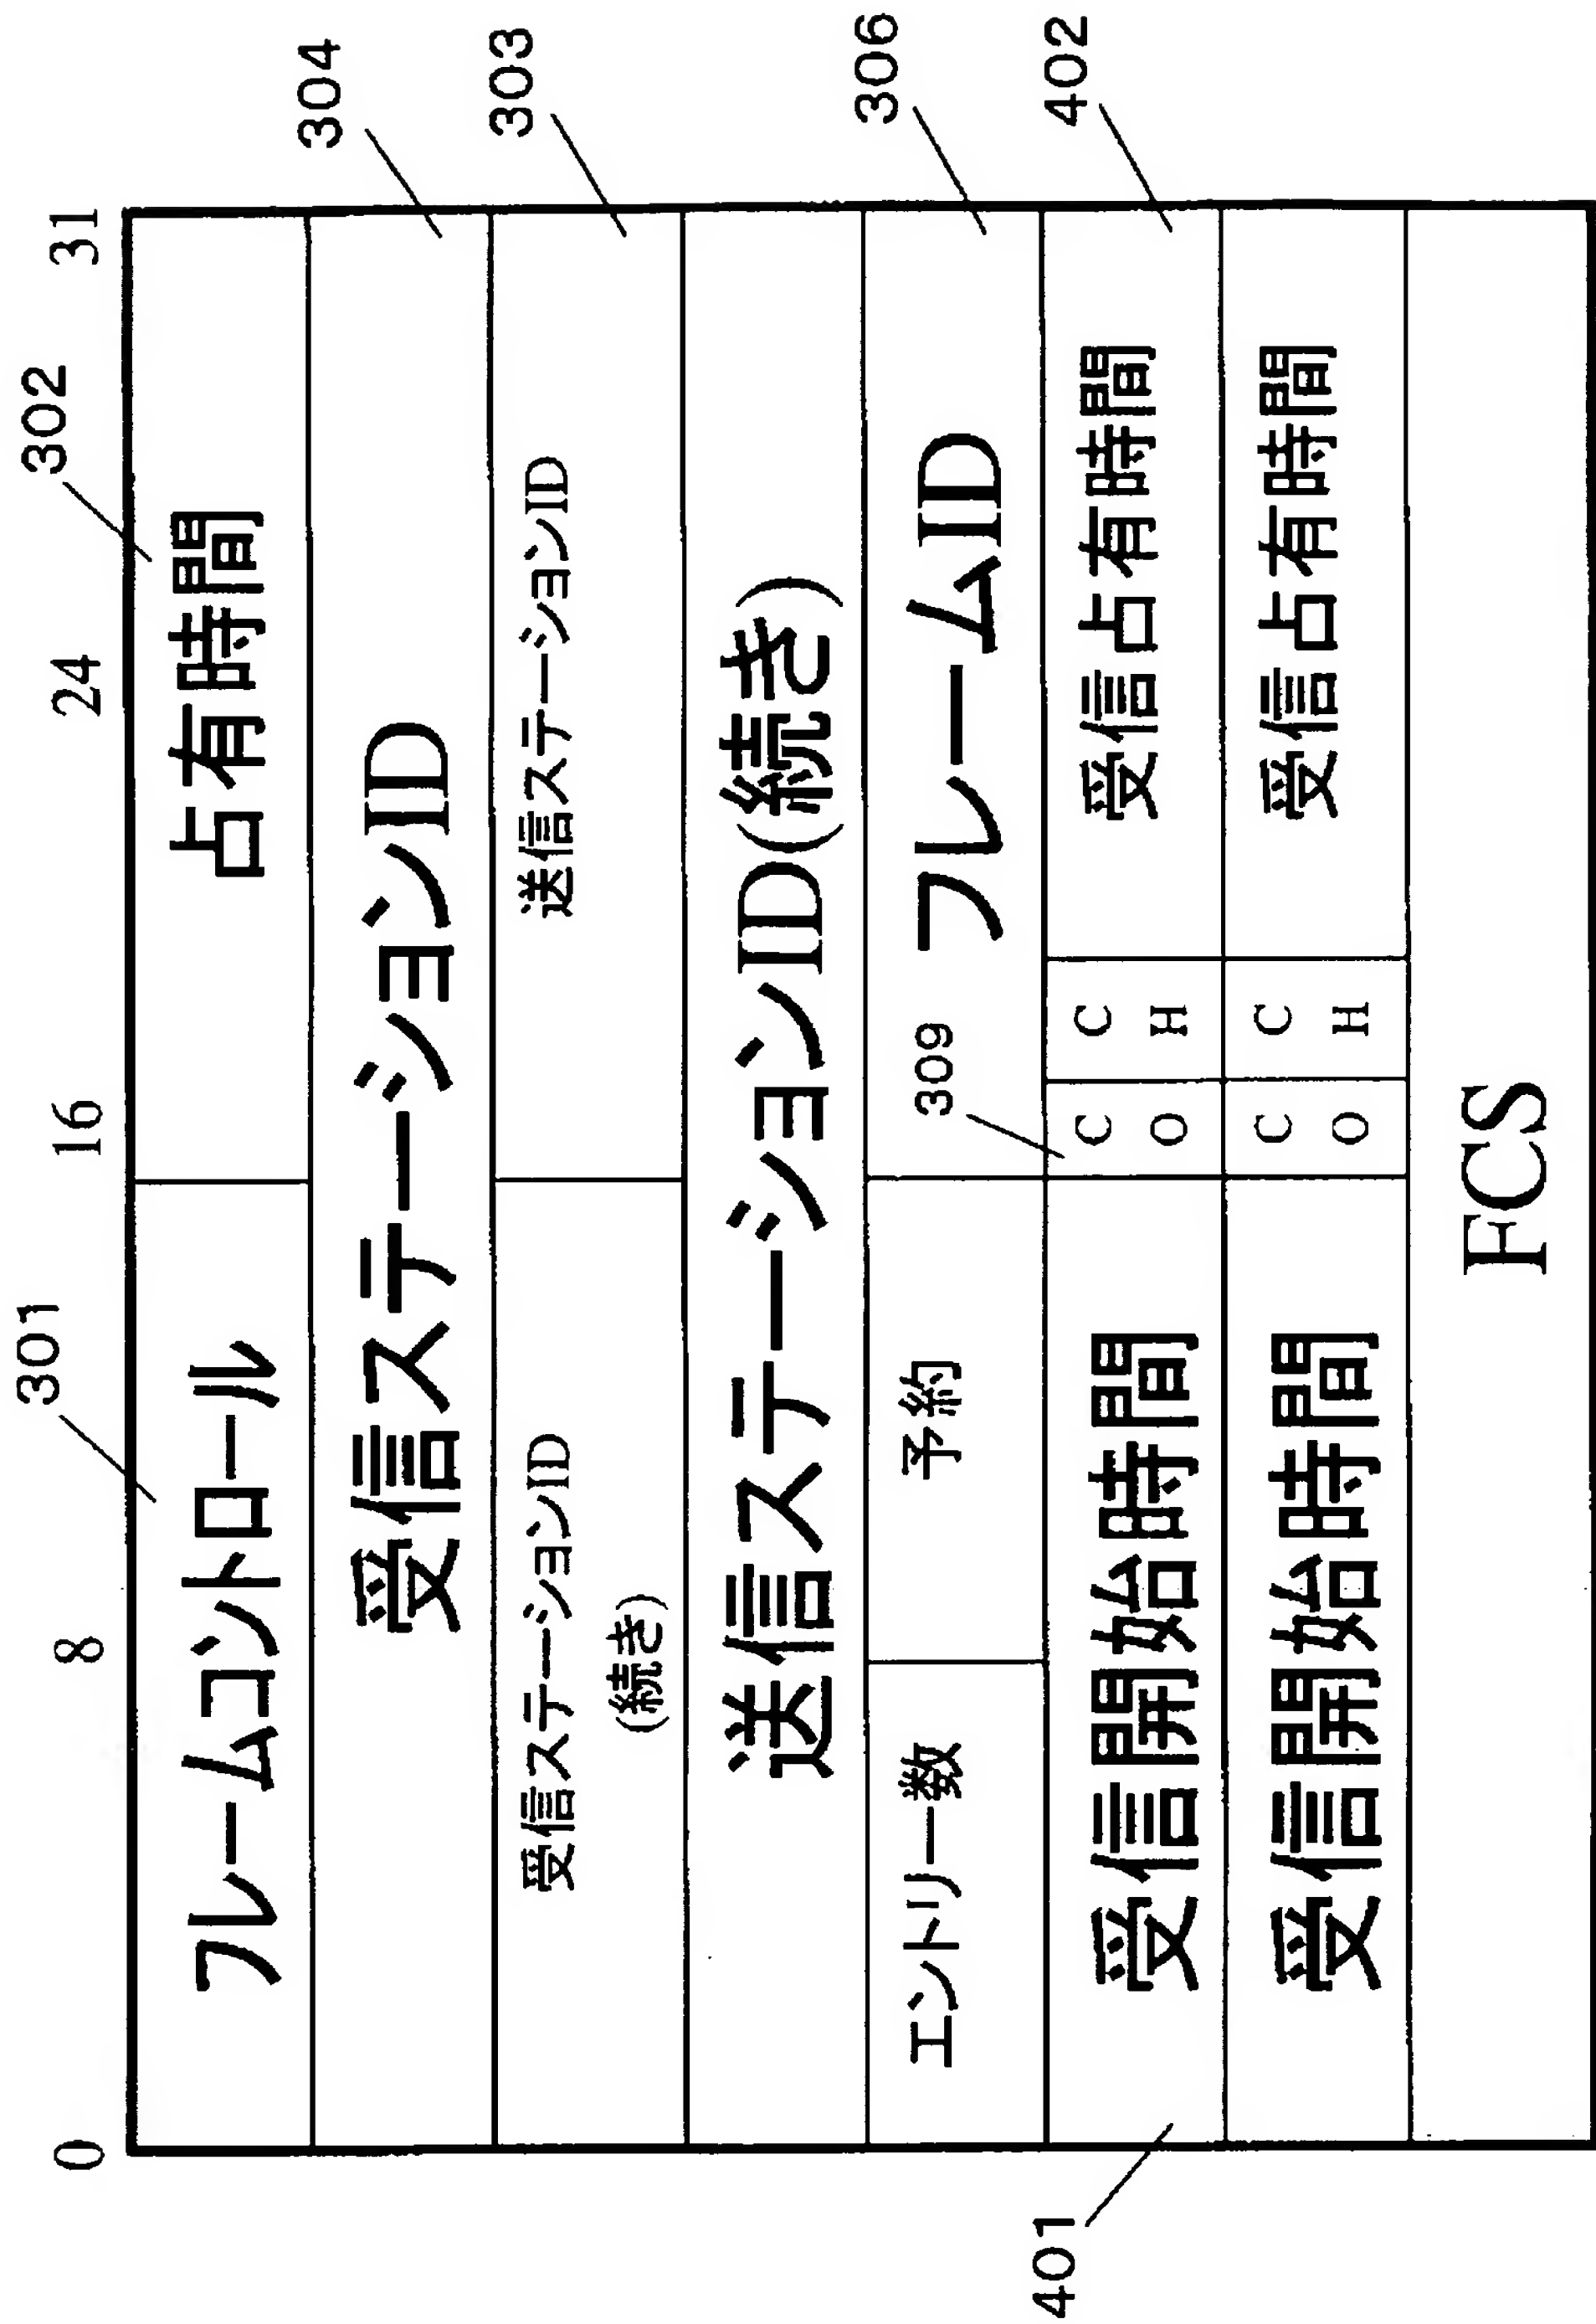 0 8 16 24 31
301 302
フレームコントロール 占有時間
304
受信ステーションID
303
受信ステーションID 送信ステーションID
(続き)
送信ステーションID(続き)
306
エントリー数 予約 フレームID
309
401 402
受信開始時間 CO CH 受信占有時間
受信開始時間 CO CH 受信占有時間
FCS